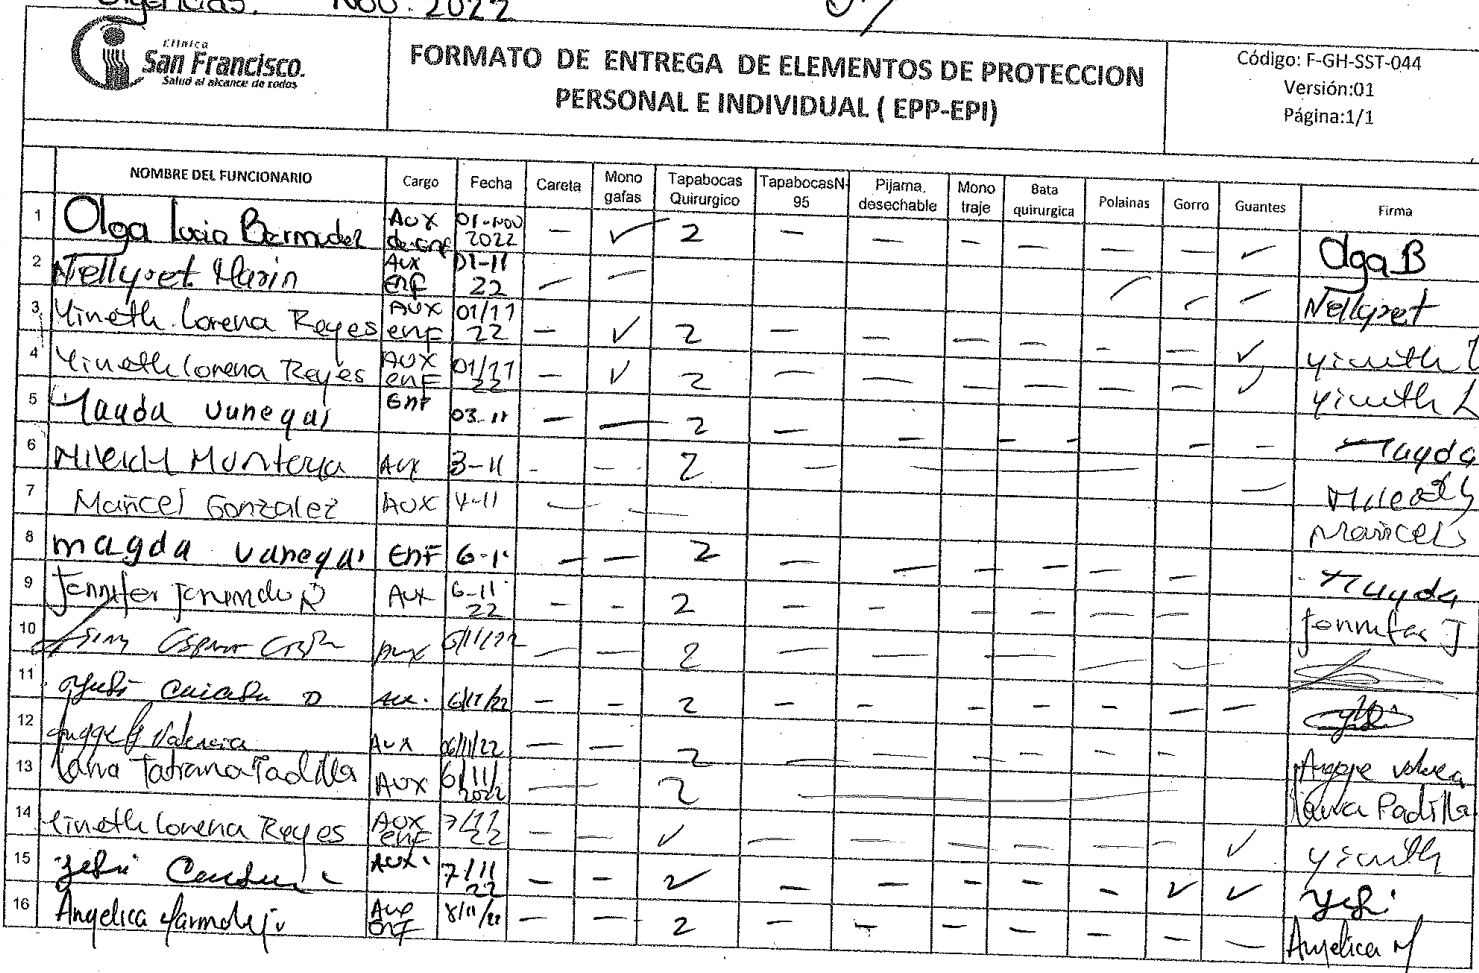 Urgencias. Nov. 2022
Clínica
San Francisco.
Salud al alcance de todos
FORMATO DE ENTREGA DE ELEMENTOS DE PROTECCION
PERSONAL E INDIVIDUAL ( EPP-EPI)
Código: F-GH-SST-044
Versión:01
Página:1/1
NOMBRE DEL FUNCIONARIO Cargo Fecha Careta Mono gafas Tapabocas Quirurgico TapabocasN-95 Pijama desechable Mono traje Bata quirurgica Polainas Gorro Guantes Firma
1 Olga Lucia Bermudez Aux de enf 01-Nov 2022 – ✓ 2 – – – – – – – Olga B
2 Nellyret Marin Aux enf 01-11 22 – – – – – Nellyret
3 Yineth Lorena Reyes Aux enf 01/11 22 – ✓ 2 – – – – – – ✓ Yineth L
4 Yineth Lorena Reyes Aux enf 01/11 22 – ✓ 2 – – – – – – ✓ Yineth L
5 Magda Vanegas Enf 03-11 – – 2 – – – – – – Magda
6 Mileidy Montoya Aux 3-11 - - 2 – – –
7 Maricel Gonzalez Aux 4-11 – – Maricel
8 Magda Vanegas Enf 6-11 – – 2 – – – – – – Magda
9 Jennifer Aux 6-11 22 – – 2 – – – – – – Jennifer J
10 Aux 6/11/22 – – 2 – – – – –
11 Aux. 6/11/22 – – 2 – – – – – – –
12 Anggey Valencia Aux 06/11/22 – – 2 – – – – – –
13 Tatiana Padilla Aux 6/11/2022 – 2 – Padilla
14 Yineth Lorena Reyes Aux enf 7/11 22 – – ✓ – – – – – – ✓ Yineth
15 Aux. 7/11 22 – – ✓ – – – – – ✓ ✓
16 Angelica Marmolejo Aux enf 8/11/22 – – 2 – – – – – – – Angelica M